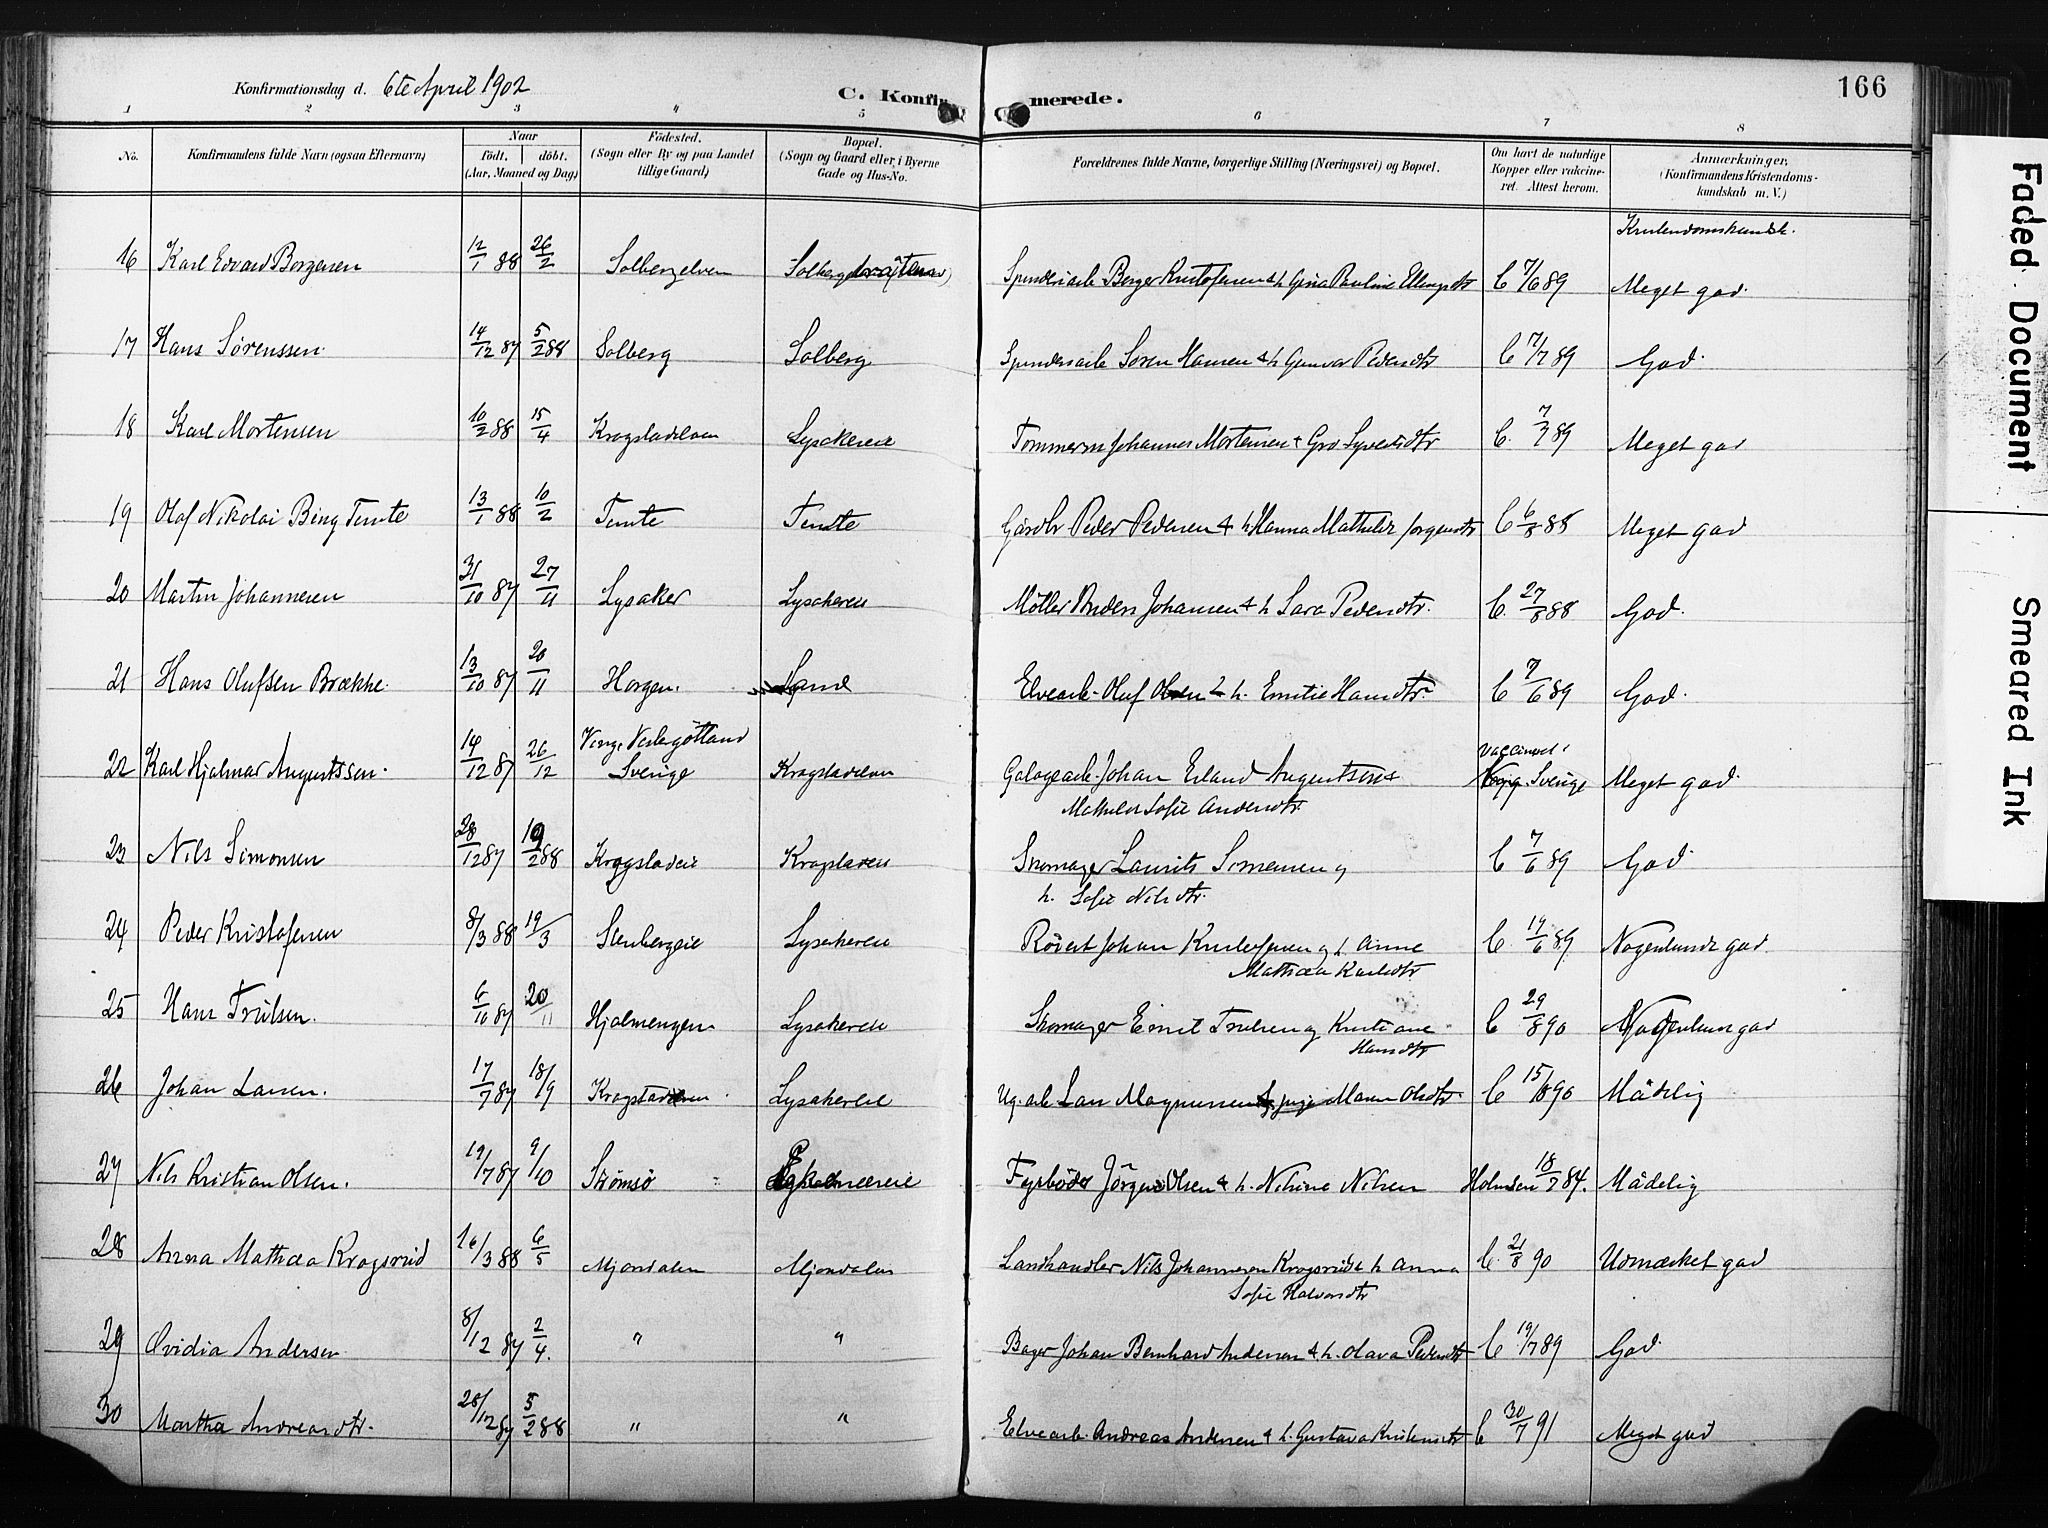 Konfirmationsdag d. 6te April 1902
C. Konfirmerede.
166
1 2 3 4 5 6 7 8
No. Konfirmandens fulde Navn (ogsaa Efternavn) Naar født. døbt. (Aar, Maaned og Dag) Fødested. (Sogn eller By og paa Landet tillige Gaard) Bopæl. (Sogn og Gaard eller i Byerne Gade og Hus-No. Forældrenes fulde Navne, borgerlige Stilling (Næringsvei) og Bopæl. Om havt de naturlige Kopper eller vakcineret. Attest herom. Anmærkninger, (Konfirmandens Kristendomskundskab m. V.)
Kristendomskundsk.
16 Karl Edvard Borgersen 12/1 88 26/2 Solbergelven Borger Kristofersen & h. Gina Pauline C 7/6 89 Meget god
17 Hans Sørenssen 14/12 87 5/2 88 Solberg Solberg Søren Hansen & h. Gunvor Pedersdtr C 7/7 89 God
18 Karl Mortensen 10/2 88 15/4 Krogstadelven Lysakereie Tømmerm Johannes Mortensen & Gro C. 7/7 89 Meget god
19 Olaf Nikolai Bing Temte 13/1 88 10/2 Temte Temte Gårdbr Peder Pedersen & h Hanna Mathilde Jørgensdtr C 6/8 88 Meget god
20 Martin Johannesen 31/10 87 27/11 Lysaker Lysakereie Møller Anders Johansen & h Sara Pedersdtr. C. 27/8 88 God.
21 Hans Olufsen Brække. 13/10 87 20/11 Horgen. Elvearb. Oluf Olsen & h. Emilie Hansdtr. C 7/6 89 God.
22 Karl Hjalmar Augustssen. 14/12 87 26/12 Vestergøtland Sverige Krogstadelven Johan Erland Augustsen & Mathilde Sofie Andersdtr. vaccineret i Sverige Meget god.
23 Nils Simonsen 28/12 87 19/2 88 Krogstadeie Krogstadeie Skomager Laurits Simonsen og h. Sofie Nilsdtr. C 7/6 89 God
24 Peder Kristofersen 8/3 88 19/3 Stenbergeie Lysakereie Johan Kristofersen og h. Anne Mathæa Karlsdtr C. 6 89 Nogenlunde god.
25 Hans Trulsen. 6/10 87 20/11 Hjalmengen Lysakereie Skomager Emil Trulsen og Kristiane Hansdtr C 29/8 90 Nogenlun god
26 Johan Larsen. 17/7 87 18/9 Lysakereie Lars Magnussen Maren Olsdtr C 15/8 90 Mådelig
27 Nils Kristian Olsen. 19/7 87 9/10 Strømsø Fyrbøder Jörgen Olsen & h. Nilsine Nilsen Holmsen 18/7 84. Mådelig
28 Anna Mathæa Krogsrud 16/3 88 6/5 Mjøndalen Mjøndalen Landhandler Nils Johannesen Krogsrud & h Anna Sofie Halvorsdtr C. 21/8 90 Udmærket god
29 Ovidia Andersen 8/12 87 2/4. " " Bager Johan Bernhard Andersen & h. Olava Pedersdtr C 19/7 89 God
30 Martha Andreasdtr. 28/12 87 5/2 88 " " Elvearb. Andreas Andersen & h. Gustava Kristensdtr C 30/7 91 Meget god
Faded Document
Smeared Ink